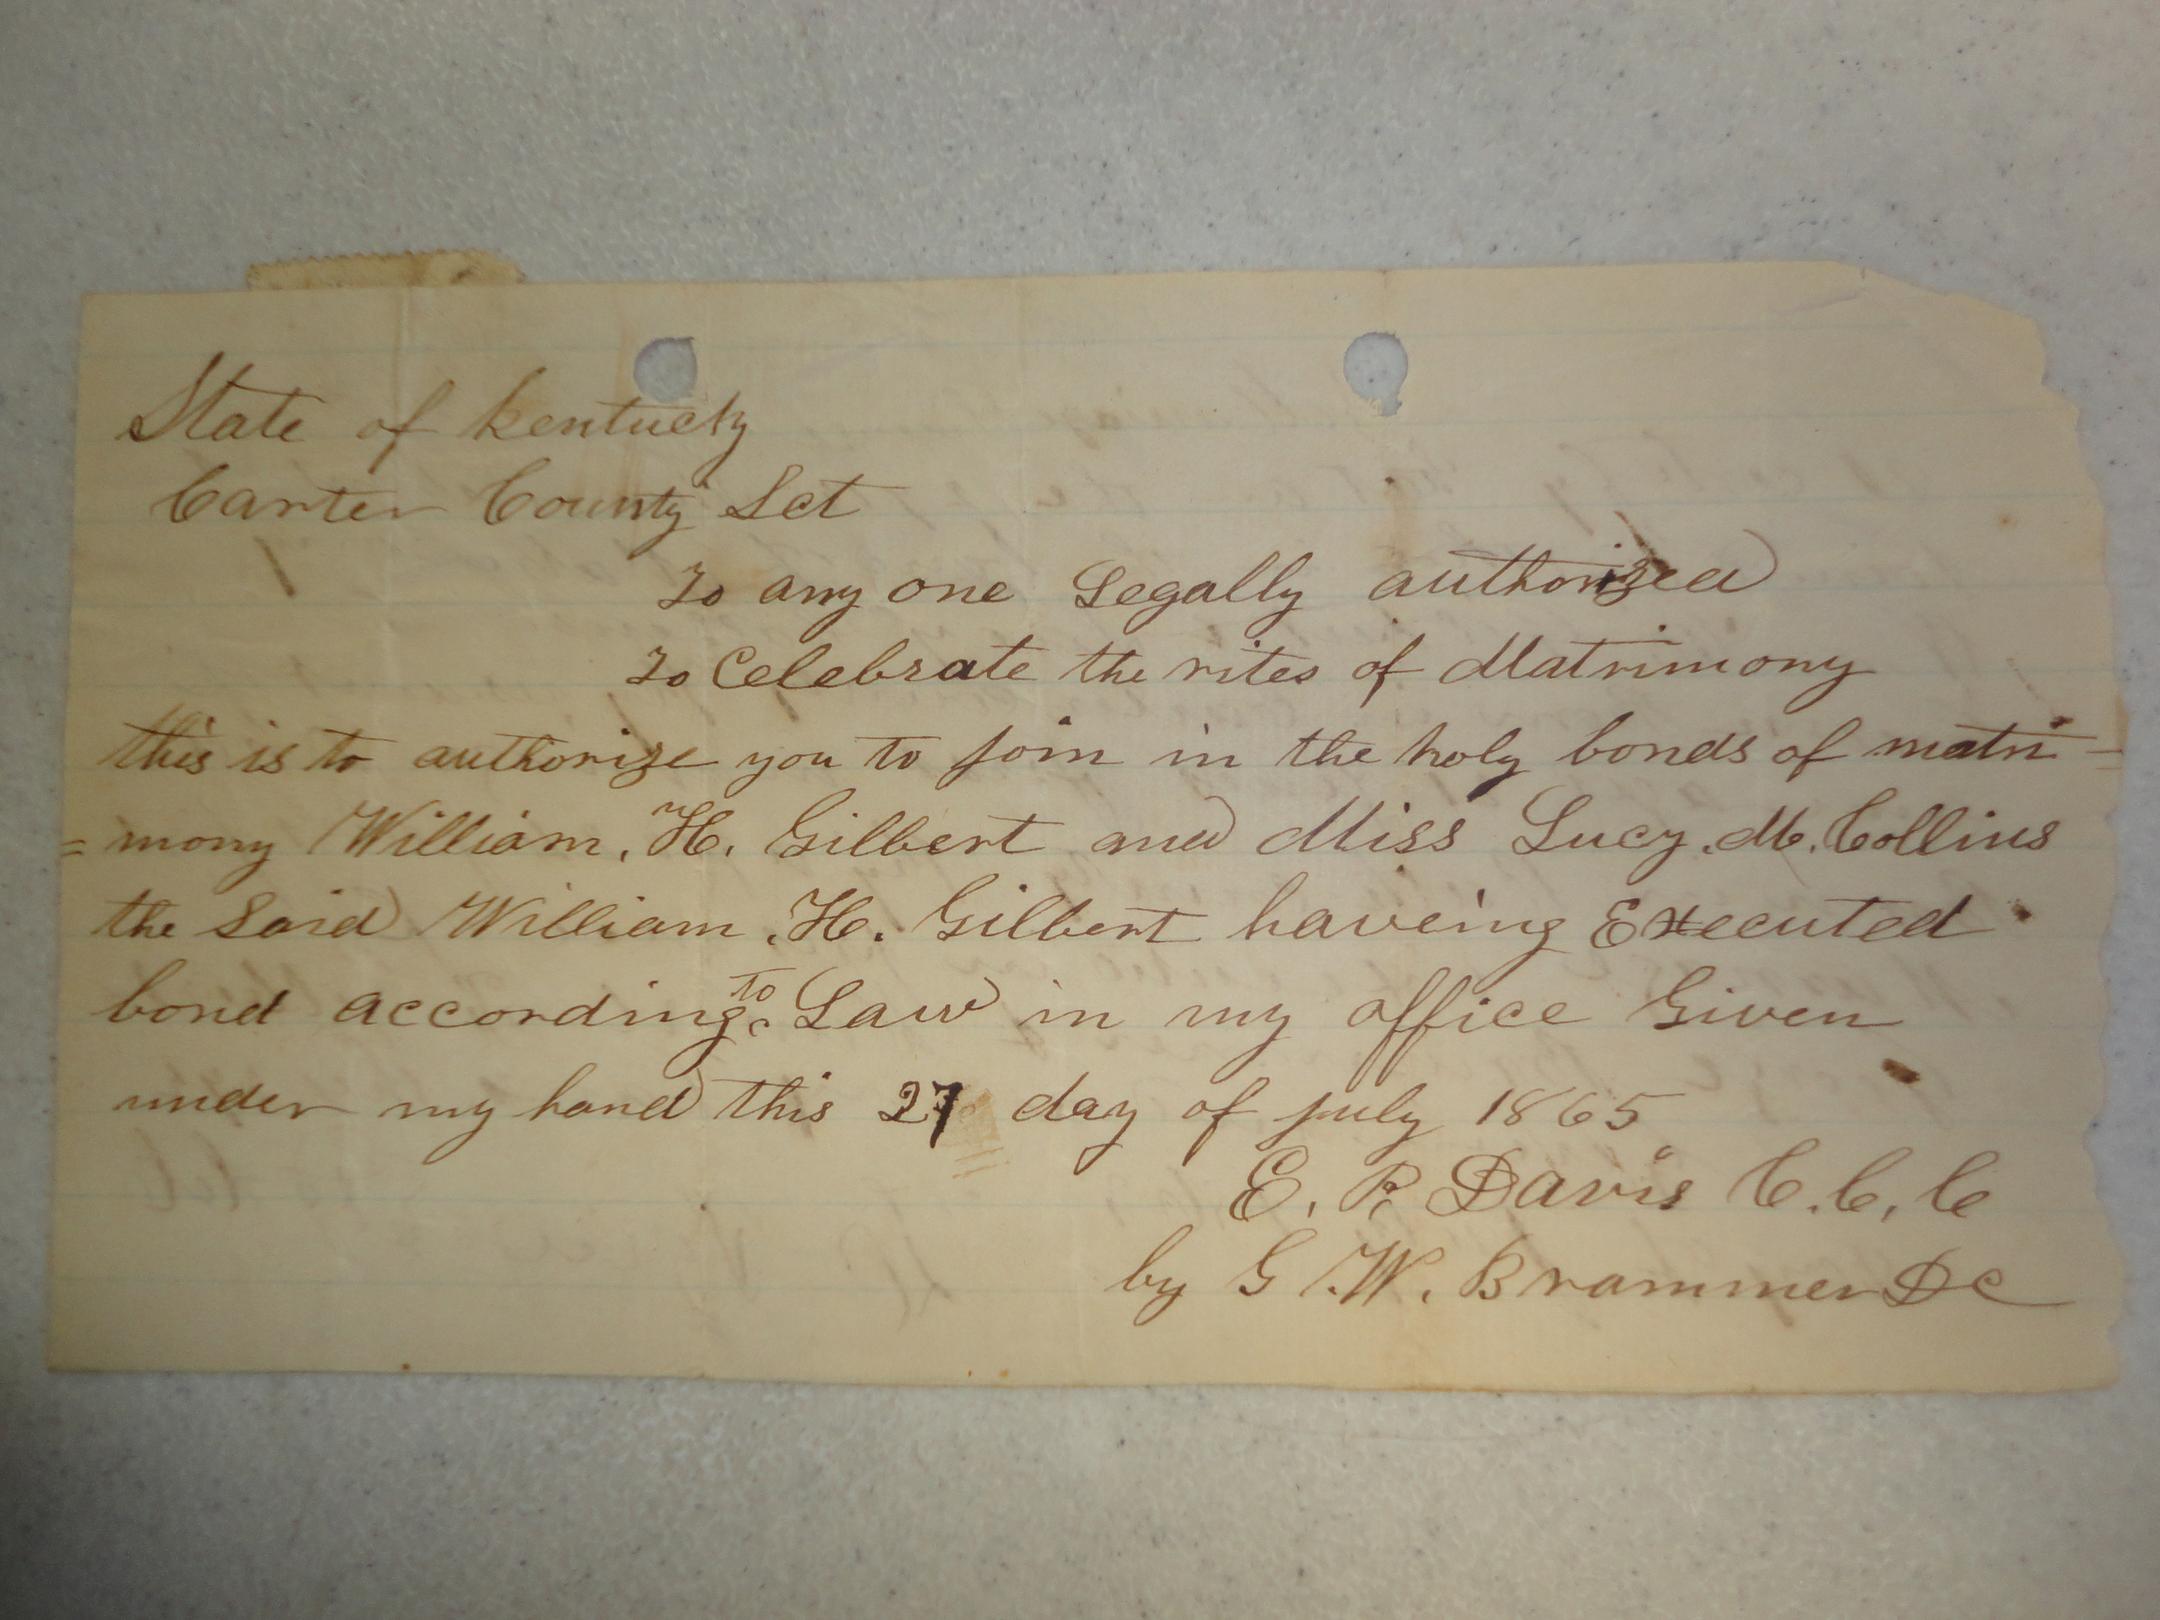 State of Kentucky
Carter County Sct
To any one Legally authorized
To Celebrate the rites of Matrimony
this is to authorize you to join in the holy bonds of matri=
=mony William. H. Gilbert and Miss Lucy. M. Collins
the Said William. H. Gilbert haveing Executed
bond according to Law in my office Given
under my hand this 27 day of july 1865
E. R. Davis C. C. C
by G W. Brammer DC